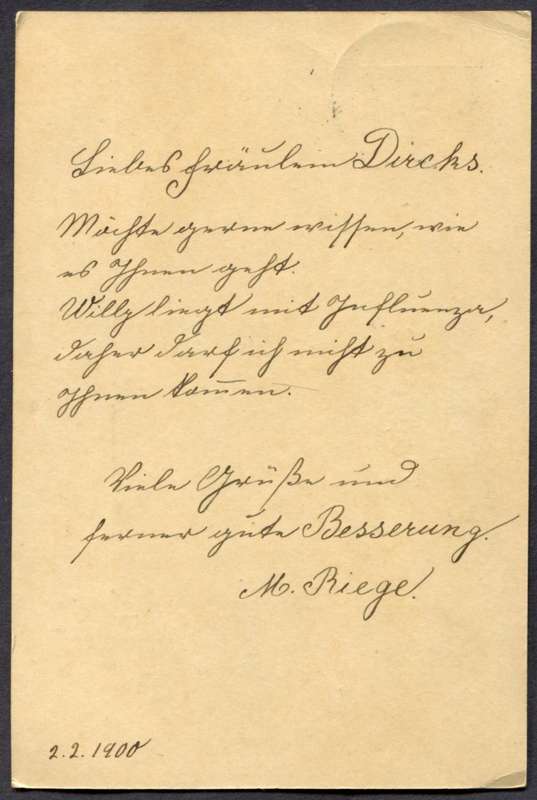 Liebes Fräulein Dircks.
Möchte gerne wissen, wie
es Ihnen geht.
Willy liegt mit Influenza,
daher darf ich nicht zu
Ihnen kom̅en.
Viele Grüße und
ferner gute Besserung.
M. Riege.
2.2.1900